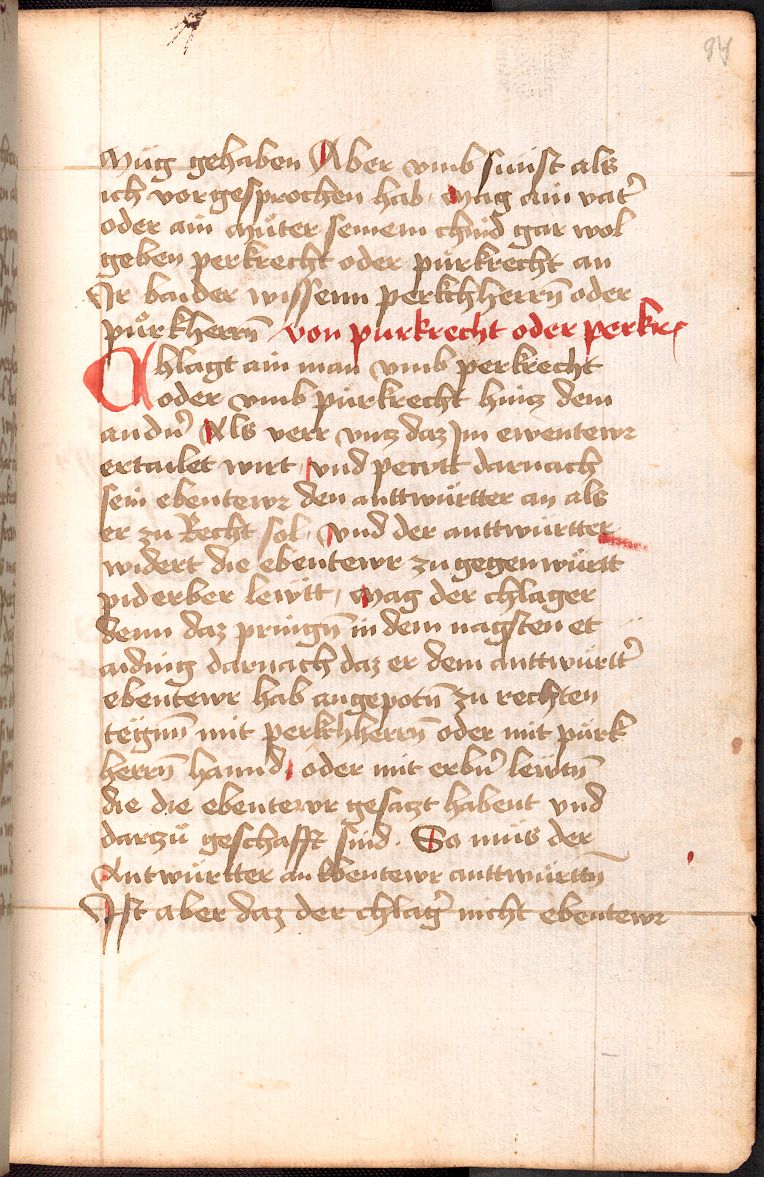 94
müg gehaben Aber vmb sunst als
ich vorgesprochen hab / Mag ain vat̾
oder ain Můter seinem chind gar wol
geben perkrecht oder purkrecht an
Ir baider wissenn perkchherrn̄ oder
půrkherrn̄ von purkrecht oder perkr
Chlagt ain man vmb perkrecht
oder vmb purkrecht hincz dem
andn̾ Als verr vncz daz Im ewentewr
ertailet wirt / vnd pewtt darnach
sein ebentewr den anttwürtter an als
er zu Recht sol / vnd der anttwürtter
widert die ebentewr zu gegenwürtt
piderber lewtt / Mag der chlager
denn daz pringn̄ in dem nagsten et
aiding darnach daz er dem anttwürtt̾
ebentewr hab angepotn̄ zu rechten
tëgnn mit perkchherrn̄ oder mit pürk
herrn̄ hannd / oder mit erbn̾ lewtn̄
die die ebentewr gesaczt habent vnd
darczů geschafft sind. So můs der
Antwürtter an ebentewr anttwürttn̄
Ist aber daz der chlag̾ nicht ebentewr